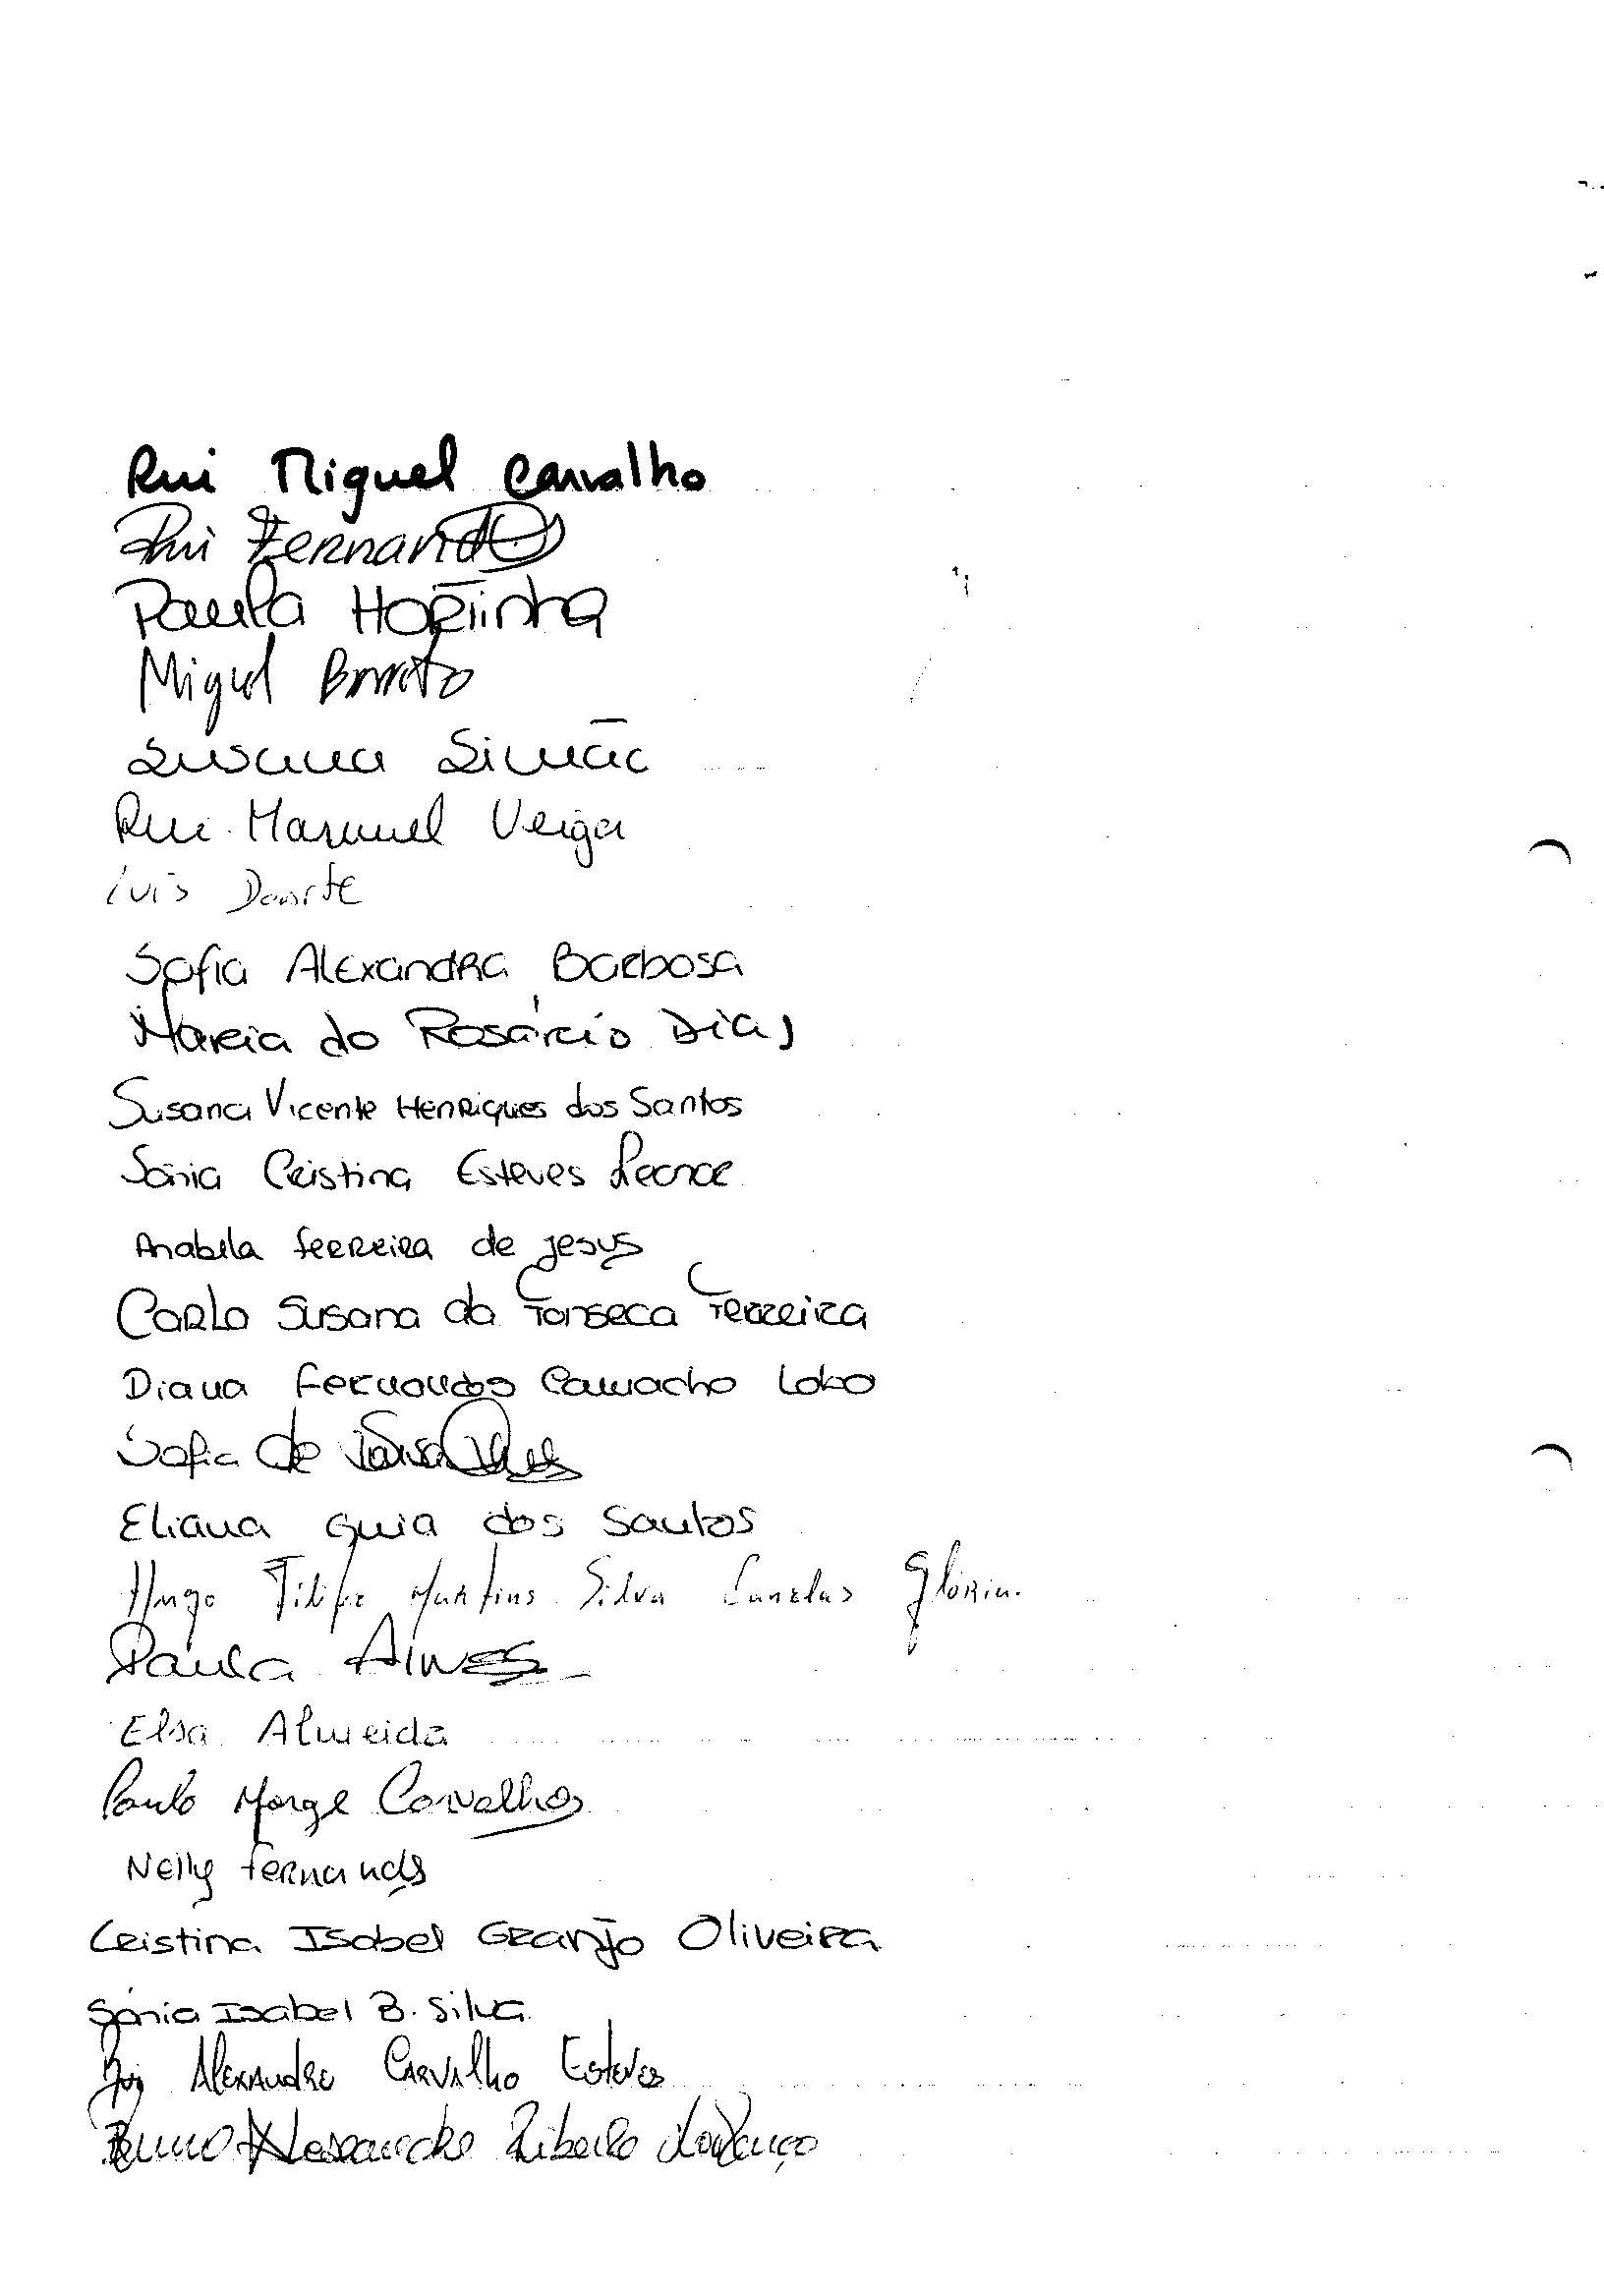 Rui Miguel Carvalho
Rui Fernando
Paula Hortinha
Miguel Barreto
Susana Simão
Rui Manuel Veiga
Luis Duarte
Sofia Alexandra Barbosa
Maria do Rosário Dias
Susana Vicente Henriques dos Santos
Sónia Cristina Esteves
Anabela Ferreira de Jesus
Carla Susana da Fonseca Ferreira
Diana Fernandes Camacho Lobo
Sofia de
Eliana Guia dos Santos
Hugo Filipe Martins Silva Canelas Glória.
Paula Alves
Elsa Almeida
Paulo Jorge Carvalho
Nelly Fernandes
Cristina Isabel Granjo Oliveira
Sónia Isabel B. Silva
Rui Alexandre Carvalho Esteves
Bruno Alexandre Ribeiro Lourenço